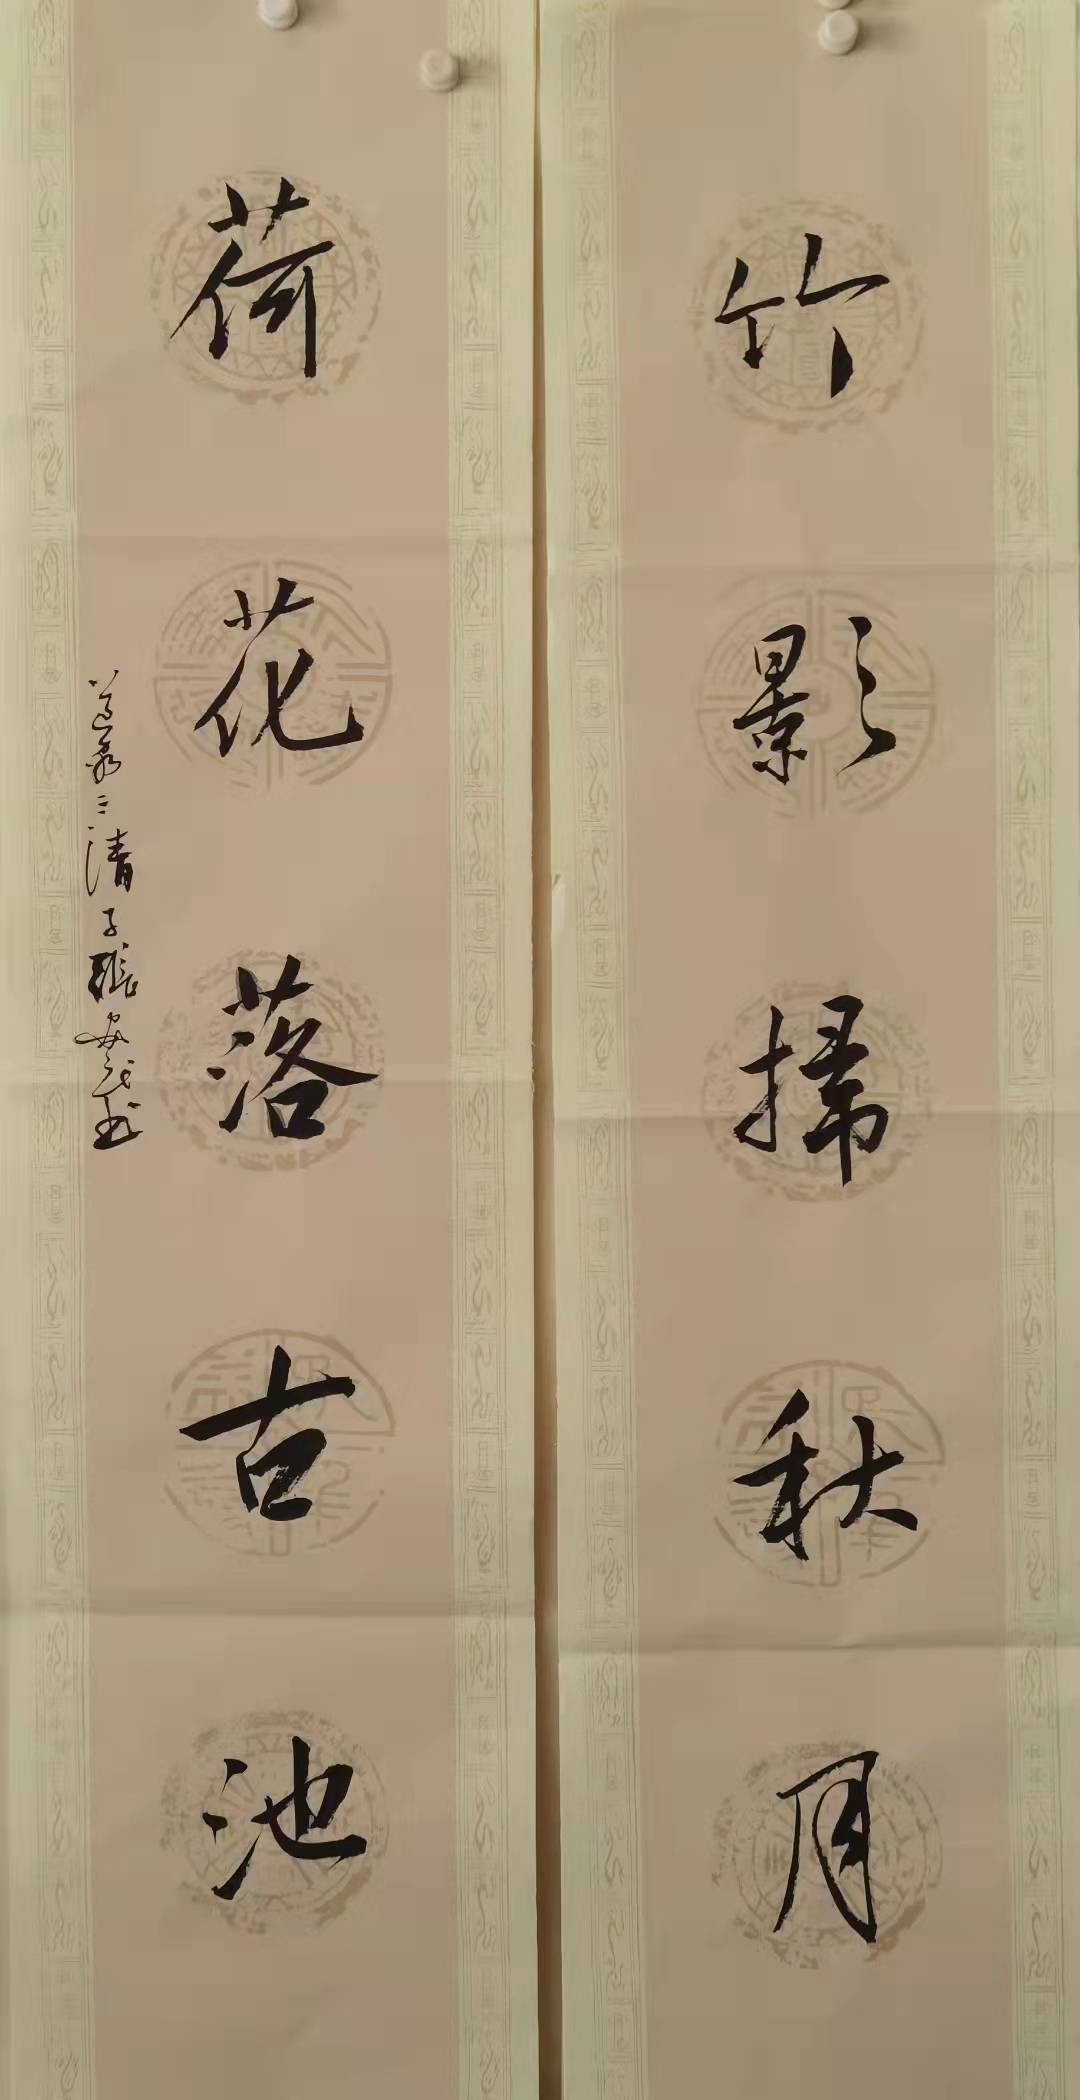 竹影掃秋月
荷花落古池
遵義三清子張安茂書